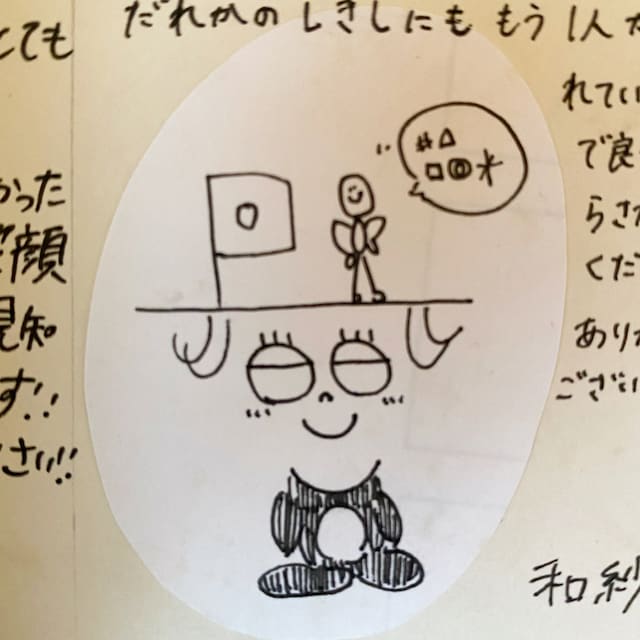 だれかのしきしにももう1人か
とても
かった
顔
見知
す!!
さい!!
れてい
で良
らさ
くだ
ありが
ござい
#△
□◎米
和紗